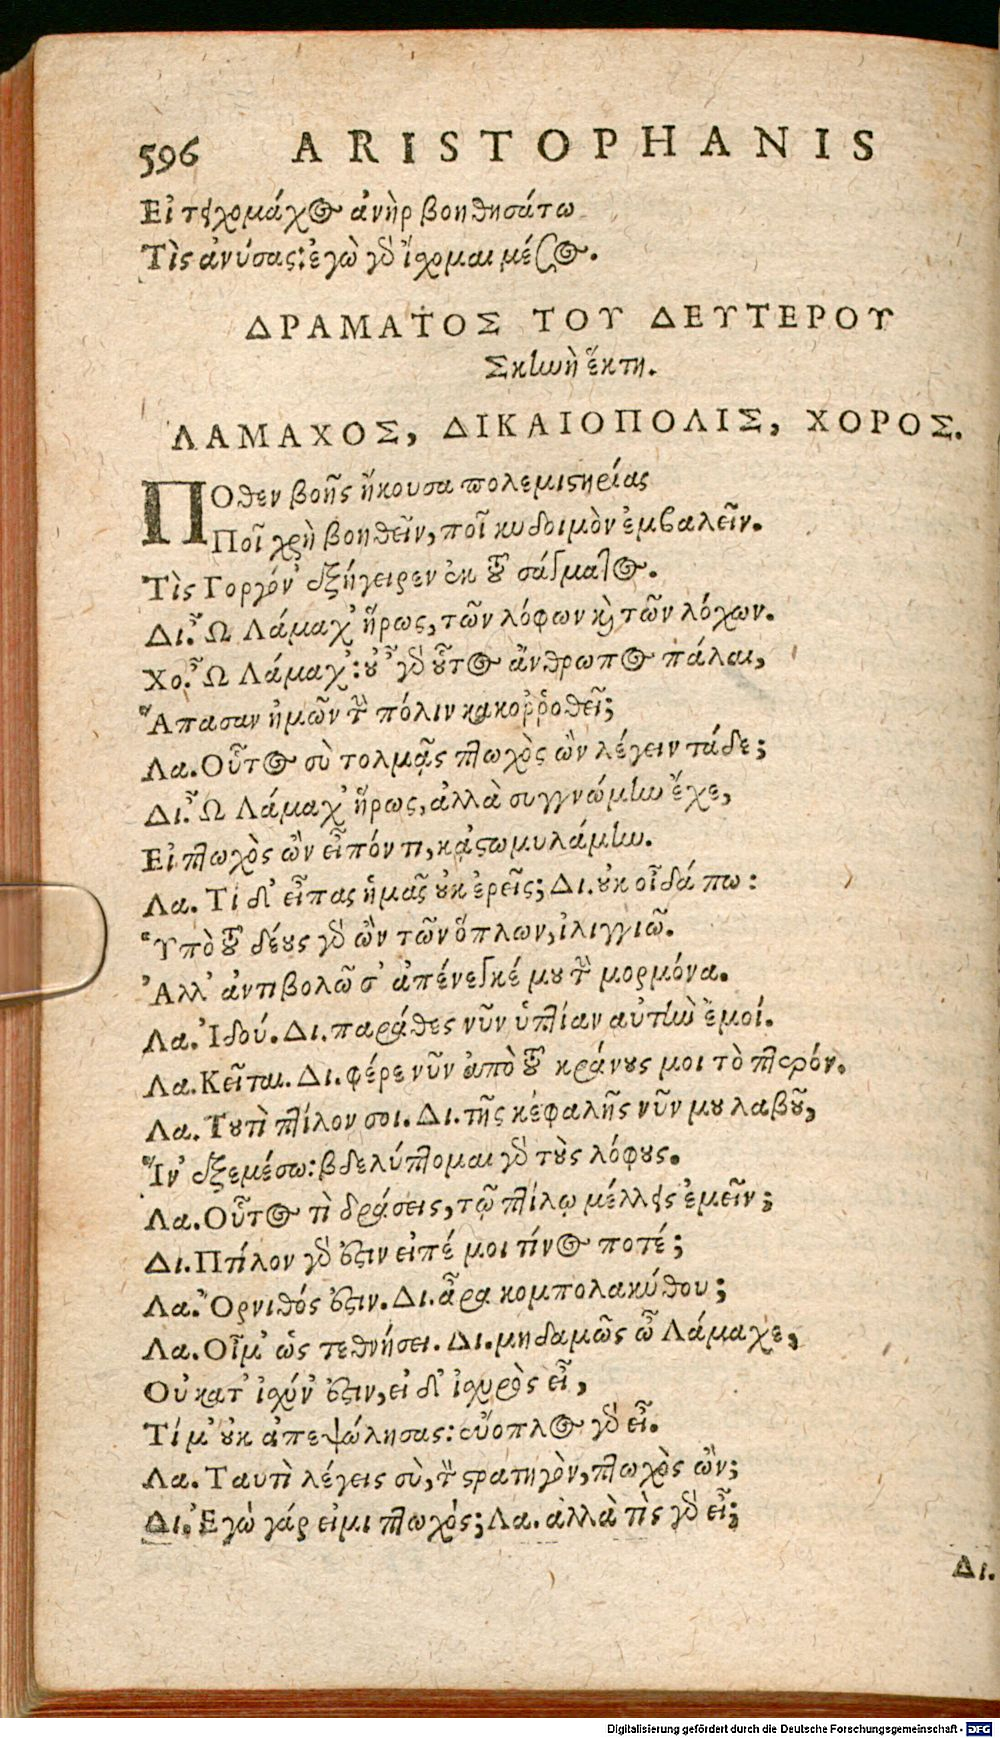 596 ARISTOPHANIS
Εἰ τειχομάχος ἀνὴρ βοηθησάτω
Τὶς ἀνύσας: ἐγὼ γὸ ἴχομαι μέσος.
ΔΡΑΜΑΤΟΣ ΤΟΥ ΔΕΥΤΕΡΟΥ
Σκηνὴ ἕκτη.
ΛΑΜΑΧΟΣ, ΔΙΚΑΙΟΠΟΛΙΣ, ΧΟΡΟΣ.
ΠΟθεν βοῆς ἤκουσα πολεμιστηρίας
Ποῖ χρὴ βοηθεῖν, ποῖ κυδοιμὸν ἐμβαλεῖν.
Τὶς Γοργόν' ἐξήγειρεν ἐκ τοῦ σάγματος.
Δι. Ὦ Λάμαχ' ἥρως, τῶν λόφων καὶ τῶν λόχων.
Χο. Ὦ Λάμαχ': οὐ γὸ οὗτος ἄνθρωπος πάλαι,
Ἅπασαν ἡμῶν τὴν πόλιν κακοῤῥοθεῖ;
Λα. Οὗτος σὺ τολμᾷς πτωχὸς ὢν λέγειν τάδε;
Δι. Ὦ Λάμαχ' ἥρως, ἀλλὰ συγγνώμην ἔχε,
Εἰ πτωχὸς ὢν εἶπόν τι, κᾀστωμυλάμην.
Λα. Τί δ' εἶπας ἡμᾶς οὐκ ἐρεῖς; Δι. οὐκ οἶδά πω:
Ὑπὸ τοῦ δέους γὸ ὢν τῶν ὅπλων, ἰλιγγιῶ.
Ἀλλ' ἀντιβολῶ σ' ἀπένεγκέ μου τὴν μορμόνα.
Λα. Ἰδού. Δι. παράθες νῦν ὑπτίαν αὐτὴν ἐμοί.
Λα. Κεῖται. Δι. φέρε νῦν ἀπὸ τοῦ κράνους μοι τὸ πτερόν.
Λα. Τουτὶ πτίλον σοι. Δι. τῆς κεφαλῆς νῦν μου λαβοῦ,
Ἵν' ἐξεμέσω: βδελύττομαι γὸ τοὺς λόφους.
Λα. Οὗτος τὶ δράσεις, τῷ πτίλῳ μέλλεις ἐμεῖν;
Δι. Πτίλον γὸ ἐστιν εἰπέ μοι τίνος ποτέ;
Λα. Ὄρνιθός ἐστιν. Δι. ἆρα κομπολακύθου;
Λα. Οἴμ' ὡς τεθνήσει. Δι. μηδαμῶς ὦ Λάμαχε,
Οὐ κατ' ἰσχύν' ἐστιν, εἰ δ' ἰσχυρὸς εἶ,
Τί μ' οὐκ ἀπεψώλησας: εὔοπλος γὸ εἶ.
Λα. Ταυτὶ λέγεις σὺ, τὴν στρατηγὸν, πτωχὸς ὤν;
Δι. Ἐγὼ γάρ εἰμι πτωχός; Λα. ἀλλὰ τὶς γὸ εἶ;
Δι.
Digitalisierung gefördert durch die Deutsche Forschungsgemeinschaft - DFG